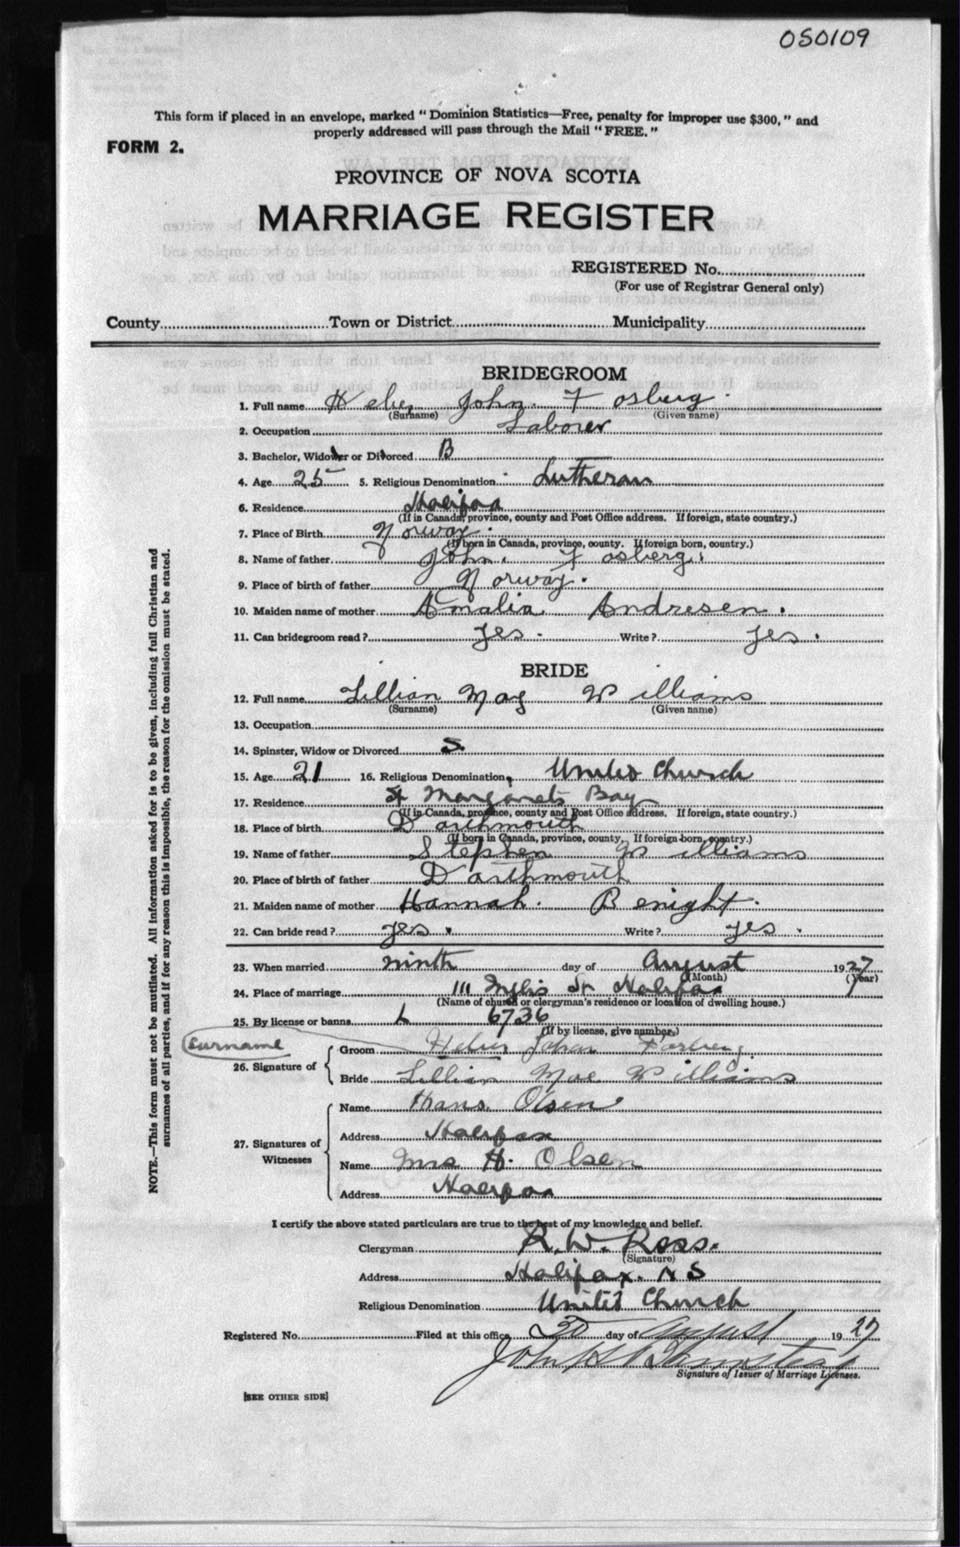 050109
This form if placed in an envelope, marked "Dominion Statistics—Free, penalty for improper use $300," and
properly addressed will pass through the Mail "FREE."
FORM 2.
PROVINCE OF NOVA SCOTIA
MARRIAGE REGISTER
REGISTERED No.
(For use of Registrar General only)
County Town or District Municipality
BRIDEGROOM
1. Full name John Fosberg
(Surname) (Given name)
2. Occupation Laborer
3. Bachelor, Widower or Divorced B
4. Age 25 5. Religious Denomination Lutheran
6. Residence Halifax
(If in Canada, province, county and Post Office address. If foreign, state country.)
7. Place of Birth Norway.
(If born in Canada, province, county. If foreign born, country.)
8. Name of father John Fosberg.
9. Place of birth of father Norway.
10. Maiden name of mother Amalia Andresen.
11. Can bridegroom read? Yes. Write? Yes.
BRIDE
12. Full name Lillian May Williams
(Surname) (Given name)
13. Occupation
14. Spinster, Widow or Divorced S
15. Age 21 16. Religious Denomination United Church
17. Residence St Margarets Bay
(If in Canada, province, county and Post Office address. If foreign, state country.)
18. Place of birth Darthmouth
(If born in Canada, province, county. If foreign born, country.)
19. Name of father Stephen Williams
20. Place of birth of father Darthmouth
21. Maiden name of mother Hannah. Benight.
22. Can bride read? Yes. Write? Yes.
23. When married ninth day of August 1927
(Month) (Year)
24. Place of marriage 111 St Halifax
(Name of church or clergyman's residence or location of dwelling house.)
25. By license or banns L 6736
(If by license, give number.)
Surname
26. Signature of
Groom Johan
Bride Lillian Mae Williams
27. Signatures of Witnesses
Name Hans Olsen
Address Halifax
Name Mrs H. Olsen
Address Halifax
I certify the above stated particulars are true to the best of my knowledge and belief.
Clergyman R. W. Ross.
(Signature)
Address Halifax. N S
Religious Denomination United Church
Registered No. Filed at this office 30 day of August 1927
John
Signature of Issuer of Marriage Licenses.
[SEE OTHER SIDE]
NOTE.—This form must not be mutilated. All information asked for is to be given, including full Christian and
surnames of all parties, and if for any reason this is impossible, the reason for the omission must be stated.